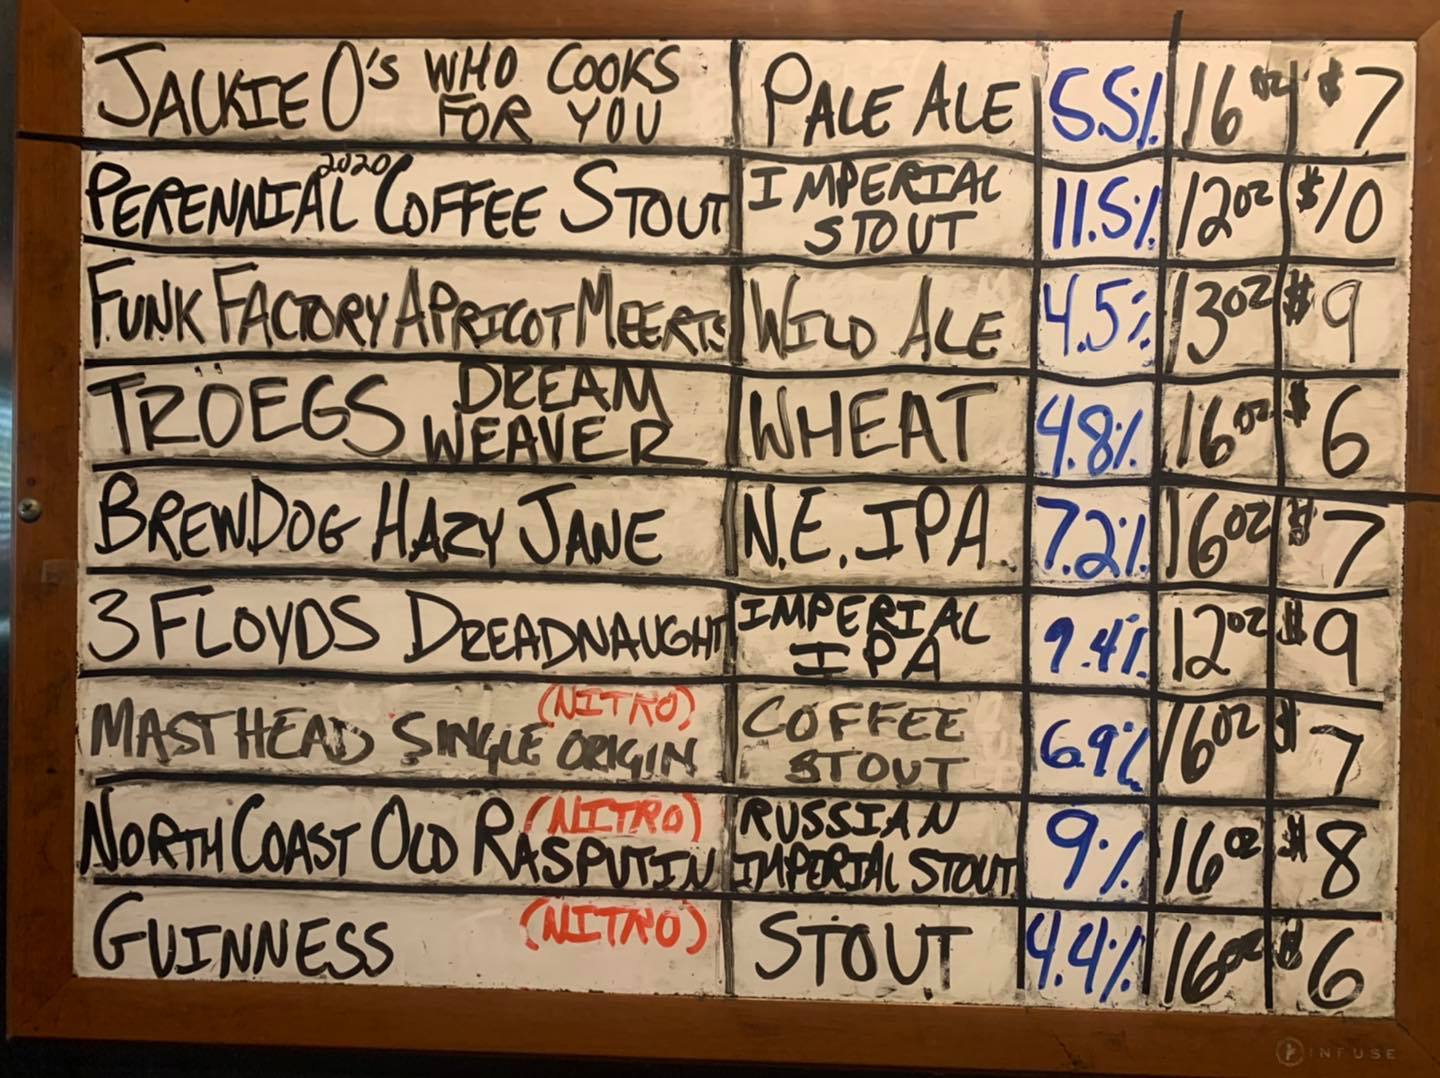 JACKIE O's WHO COOKS FOR YOU PALE ALE 5.5% 16oz $7
PERENNIAL 2020 COFFEE STOUT IMPERIAL STOUT 11.5% 12oz $10
FUNK FACTORY APRICOT MEERTS WILD ALE 4.5% 13oz $9
TRÖEGS DREAM WEAVER WHEAT 4.8% 16oz $6
BREWDOG HAZY JANE N.E. IPA 7.2% 16oz $7
3 FLOYDS DREADNAUGHT IMPERIAL IPA 9.4% 12oz $9
MASTHEAD SINGLE ORIGIN (NITRO) COFFEE STOUT 6.9% 16oz $7
NORTH COAST OLD RASPUTIN (NITRO) RUSSIAN IMPERIAL STOUT 9% 16oz $8
GUINNESS (NITRO) STOUT 4.4% 16oz $6
INFUSE